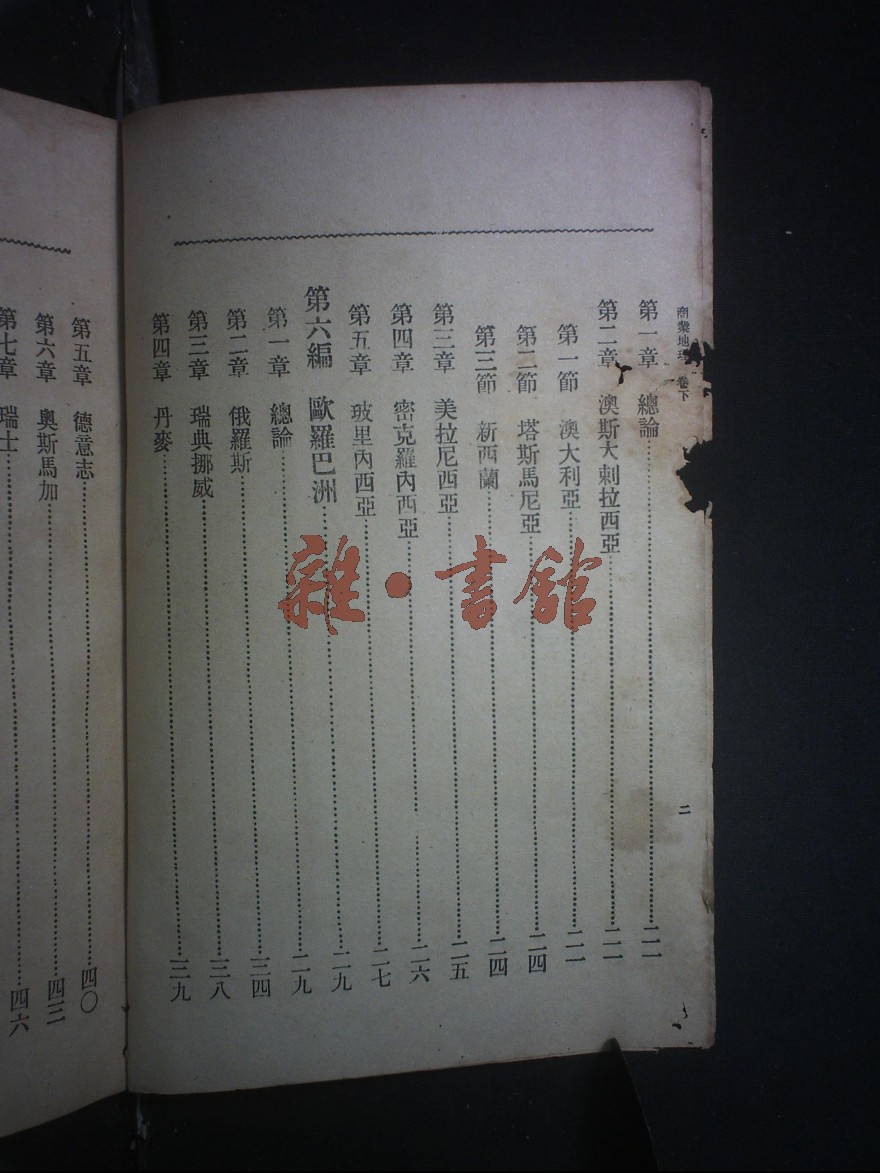 商業地理 卷下
二
第一章 總論 二一
第二章 澳斯大剌拉西亞 二一
第一節 澳大利亞 二一
第二節 塔斯馬尼亞 二四
第三節 新西蘭 二四
第三章 美拉尼西亞 二五
第四章 密克羅內西亞 二六
第五章 玻里內西亞 二七
第六編 歐羅巴洲 二九
第一章 總論 二九
第二章 俄羅斯 三四
第三章 瑞典挪威 三八
第四章 丹麥 三九
第五章 德意志 四〇
第六章 奧斯馬加 四三
第七章 瑞士 四六
雜·書館